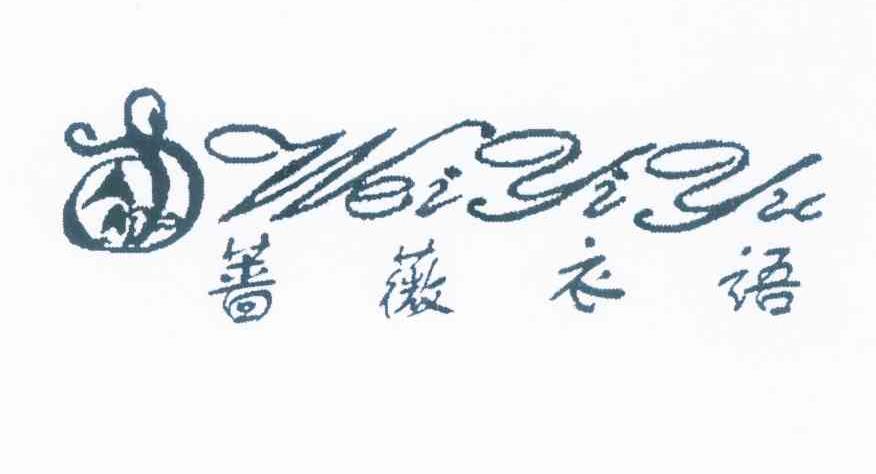 WeiYiYu
薔薇衣語